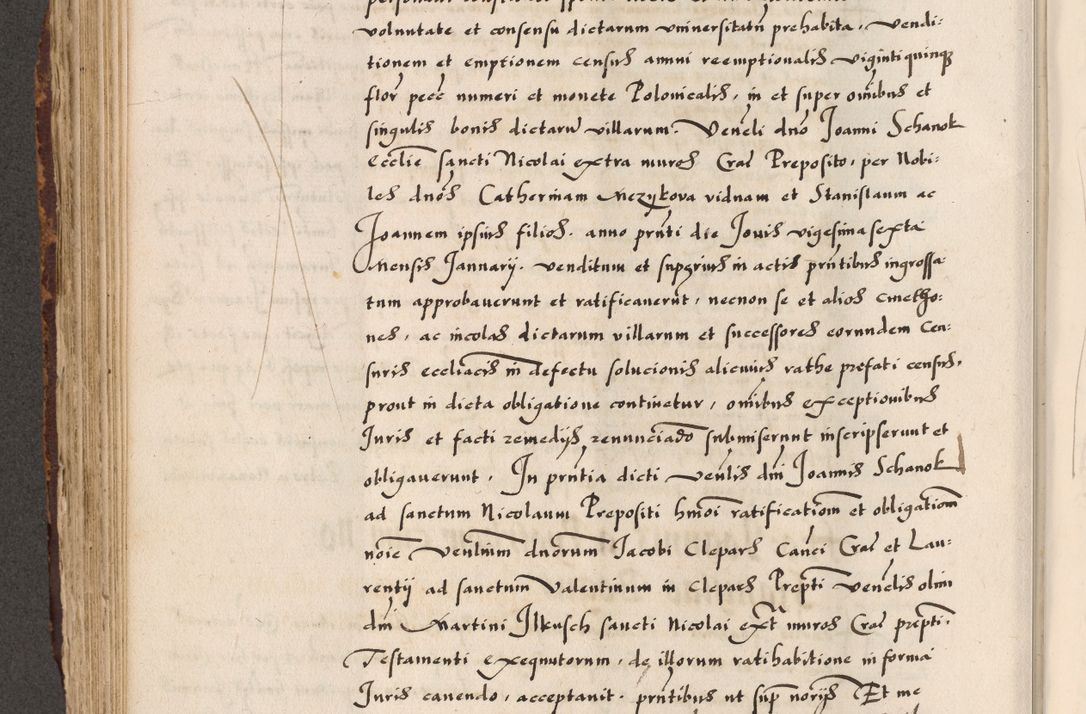 voluntate et consensu dictarum vniuersitatũ prehabita. Vendi:
tionem et emptionem census annui reemptionalis Viginti quinq₃
floř pecc̃ numeri et monete Polonicalis, in et super oñibus et
singulis bonis dictarũ villarum. Veneli dño Joanni Schanok
Eccliẽ sancti Nicolai extra muros Crac̃ Preposito, per Nobi:
les dños Catherinam Mezykova viduam et Stanislaum ac
Joannem ipsius filios. anno pñti die Jouis vigesima sexta
Mensis Januarij. venditum et superius in actis pñtibus ingrossa
tum approbauerunt et ratificauerũt, necnon se et alios cmetho:
nes, ac incolas dictarum villarum et successores eorundem Cen:
suris eccliacis in defectu solucionis alicuius rathe prefati census,
prout in dicta obligatione continetur, oñibus exceptionibus
Iuris et facti remedijs renunciãdo submiserunt inscripserunt et
obligauerunt, In pñtia dicti Veñlis dñi Joannis Schanok
ad sanctum Nicolaum Prepositi hm̃oi ratificatiom̃ et obligatiom̃
noĩe Veñlium dnorum Jacobi Clepars Canci Crac̃ et Lau:
rentij ad sanctum Valentinum in Clepars Prepti Venelis olim
dñi Martini Jlkusch sancti Nicolai extr̃ muros Crac̃ prepti.
Testamenti exequutorum, de illorum ratihabitione in forma
Iuris cauendo, acceptauit. pñtibus ut sup̃ norijs Et me